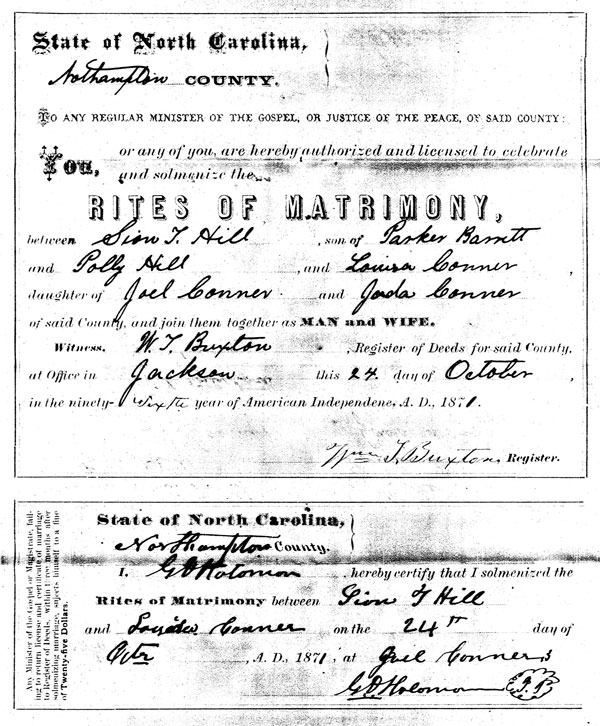 State of North Carolina,
Nothampton COUNTY.
TO ANY REGULAR MINISTER OF THE GOSPEL, OR JUSTICE OF THE PEACE, OF SAID COUNTY:
You, or any of you, are hereby authorized and licensed to celebrate
and solmenize the
RITES OF MATRIMONY,
between Sion T. Hill, son of Parker Barrett
and Polly Hill, and Louisa Conner,
daughter of Joel Conner and Jada Conner
of said County, and join them together as MAN and WIFE.
Witness, W. T. Buxton, Register of Deeds for said County,
at Office in Jackson this 24 day of October,
in the ninety-sixth year of American Independene, A. D., 1871.
Wm T. Buxton Register.
Any Minister of the Gospel or Magistrate, fail-
ing to return license and certificate of marriage
to Register of Deeds, within three months after
solmenizing marriage, sujects himself to a fine
of Twenty-five Dollars.
State of North Carolina,
Northampton County.
I, G D Holomon, hereby certify that I solmenized the
Rites of Matrimony between Sion T Hill
and Conner on the 24th day of
Octr, A. D., 1871, at Joel Conners
G D Holomon J. P.